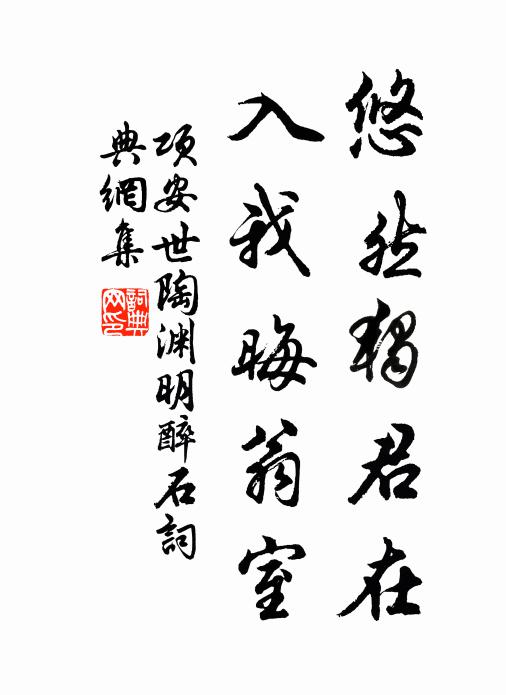 悠然獨君在
入我晦翁室
項安世陶淵明醉石詞
典網集
詞典
网印